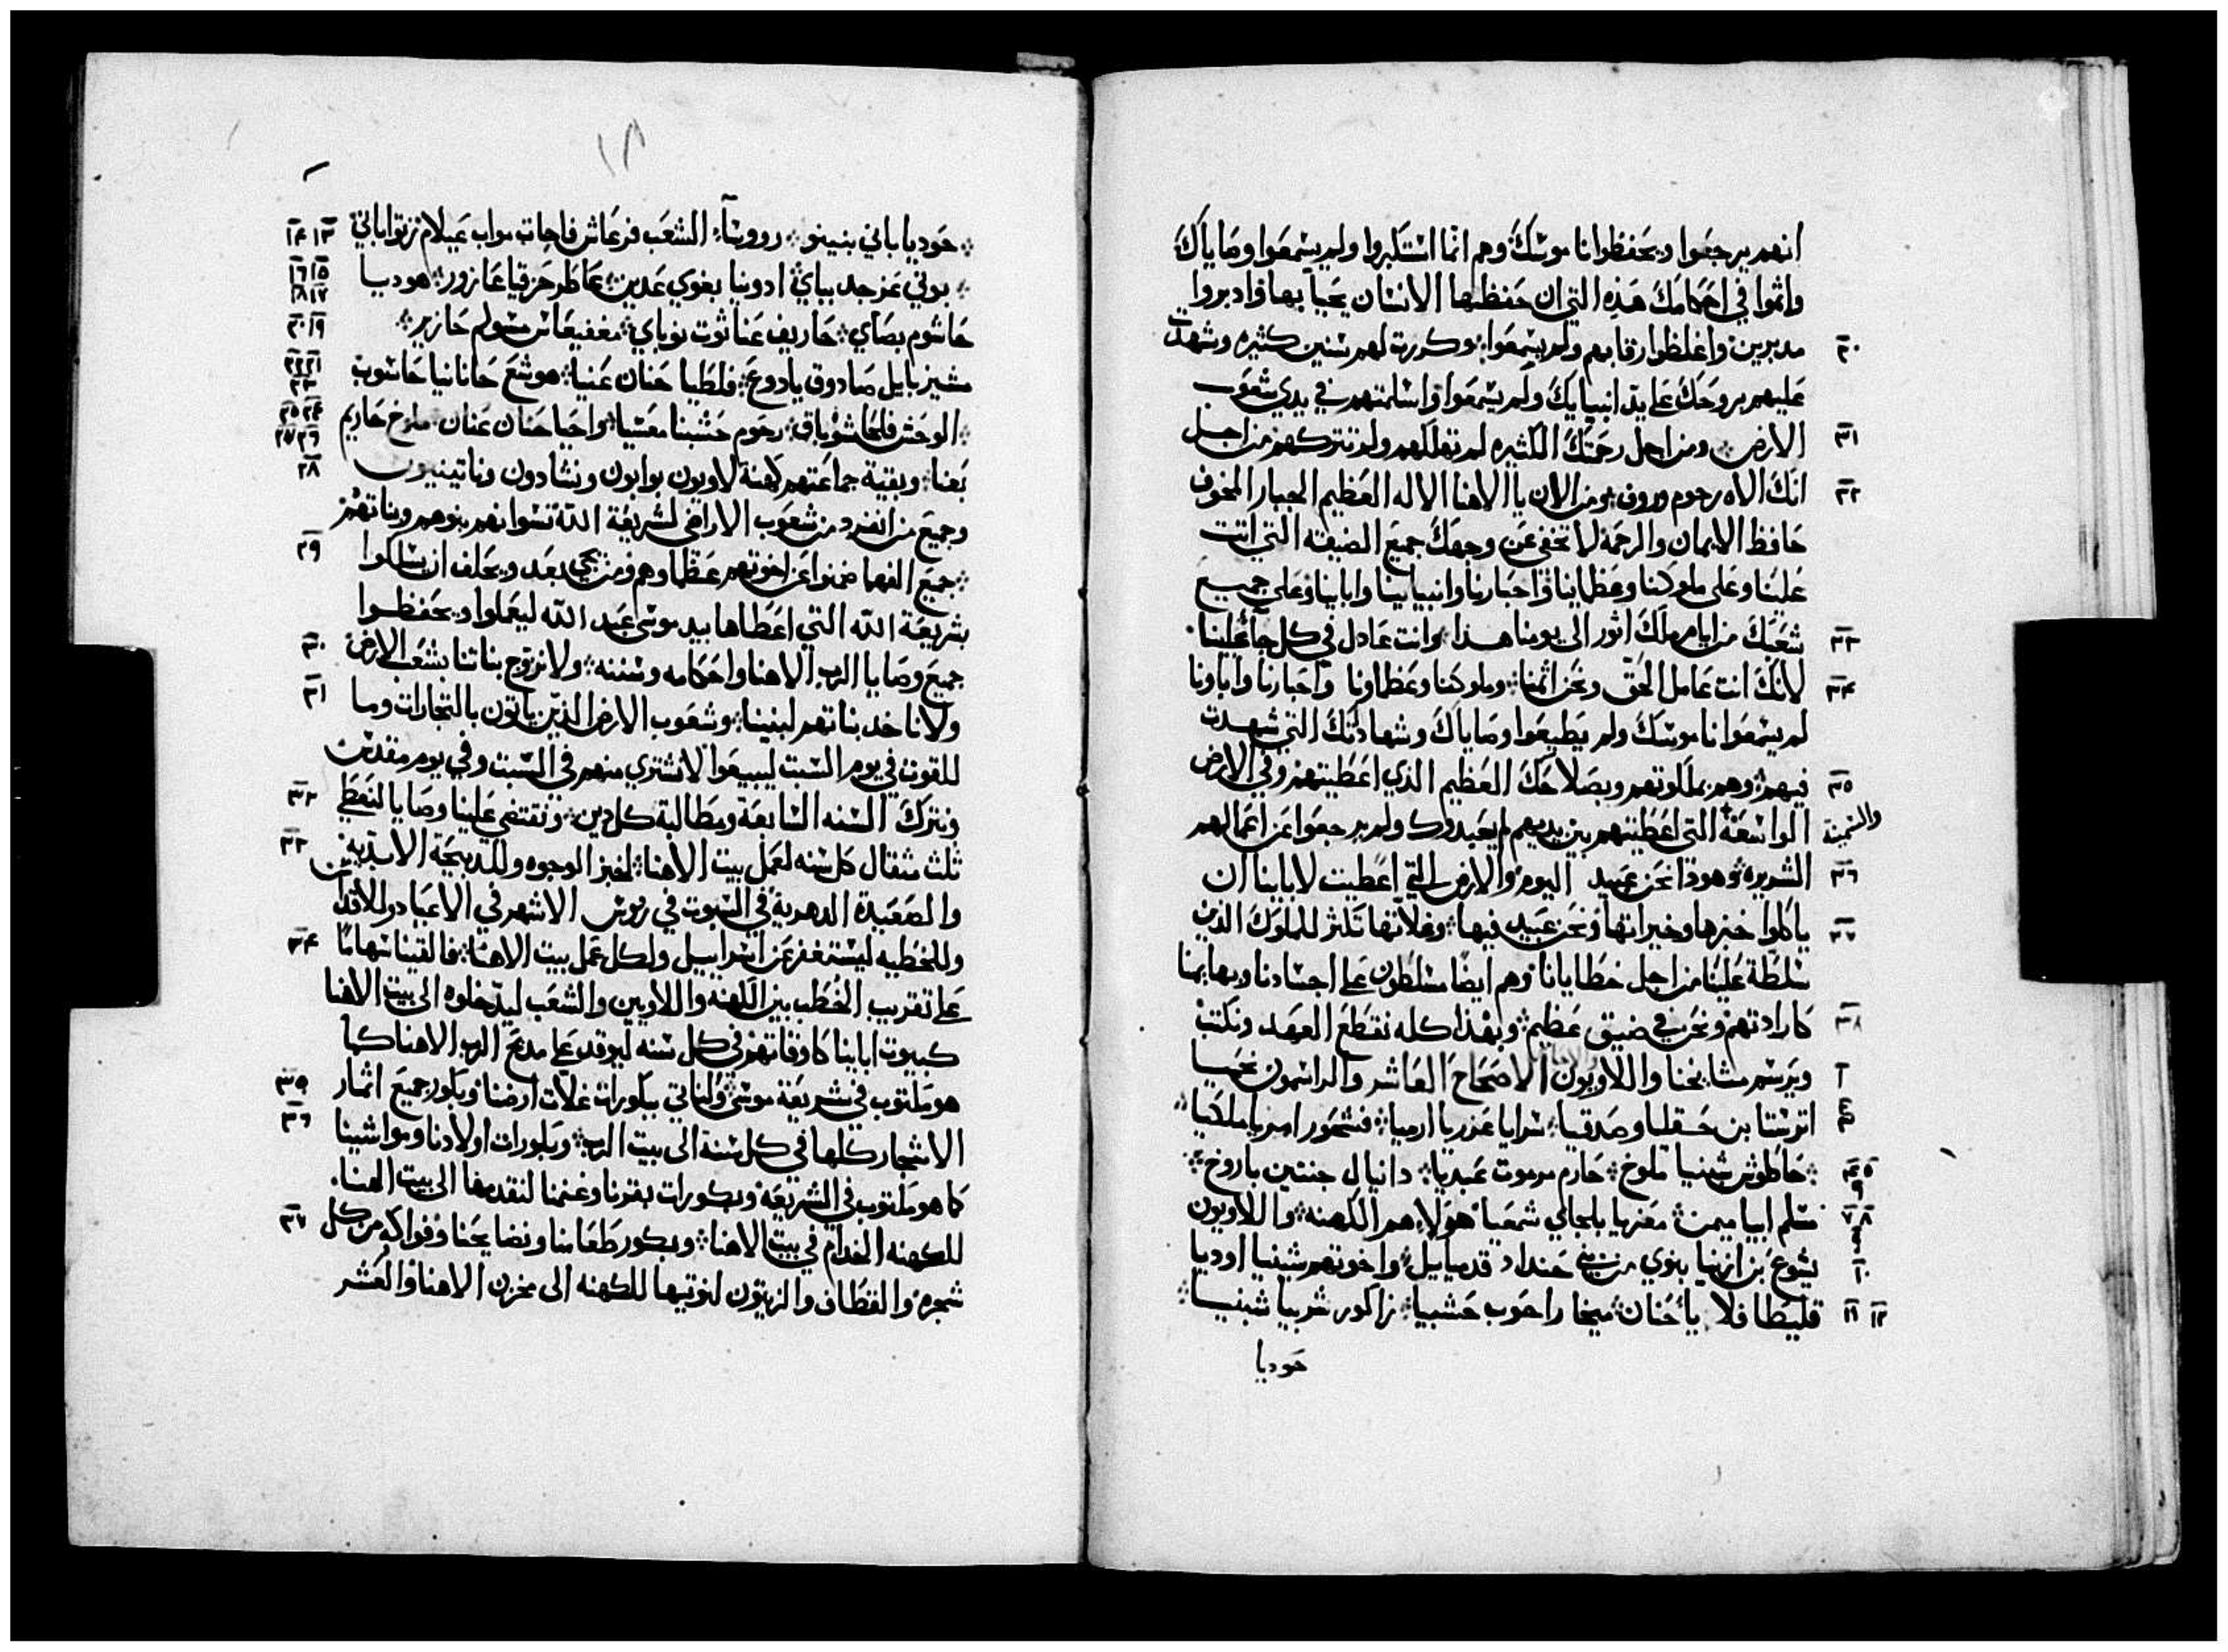 انهم يرجعوا ويحفظوا ناموسك وهم انما استكبروا ولم يسمعوا وصاياك
واثموا في احكامك هذه التي ان حفظها الانسان يحيا بها وادبروا
٣٠ مدبرين واغلظوا رقابهم ولم يسمعوا وكررت لهم سنين كثيره وشهدت
عليهم بروحك على يد انبيايك ولم يسمعوا واسلمتهم في يدي شعوب
٣١ الارض ومن اجل رحمتك الكثيره لم تهلكهم ولم تتركهم من اجل
٣٢ انك الاه رحوم وروف ومن الان يا الاهنا الاله العظيم الجبار المخوف
حافظ الايمان والرحمة لا تخفى عن وجهك جميع الضيقه التي اتت
علينا وعلى ملوكنا وعظماينا واحبارنا وانبيايينا واباينا وعلى جميع
٣٣ شعبك من ايام ملك اثور الى يومنا هذا وانت عادل في كل ما جا علينا
٣٤ لانك انت عامل الحق ونحن اثمنا وملوكنا وعظماونا واحبارنا واباونا
لم يسمعوا ناموسك ولم يطيعوا وصاياك وشهادتك التي شهدت
٣٥ فيهم وهم بملكوتهم وبصلاحك العظيم الذي اعطيتهم وفي الارض
والسمينة الواسعة التي اعطيتهم بين يديهم لم يعبدوك ولم يرجعوا عن اعمالهم
٣٦ الشريره وهوذا نحن عبيد اليوم والارض التي اعطيت لاباينا ان
٣٧ ياكلوا خبزها وخيراتها ونحن عبيد فيها وغلاتها تكثر للملوك الذين
سلطة علينا من اجل خطايانا وهم ايضا مسلطون على اجسادنا وبهايمنا
٣٨ كارادتهم ونحن في ضيق عظيم وبهذا كله نقطع العهد ونكتب
٢ ويرسم مشايخنا واللاويون الاصحاح العاشر والراسمون نحميا
اترشتا بن حقليا وصدقيا سرايا عزريا ارميا فشحور امريا ملكيا
٤ ٥ حاطوش شبنيا ملوخ حارم مرموت عبديا دانيال جنتين باروخ
٧ ٨ مسلم ابيا ميمن معزيا بلجاي شمعيا هولاء هم الكهنه واللاويون
١٠ يشوع بن ازنيا بنوي من بني حنداد قدمياييل واخوتهم شبنيا اوديا
١١ ١٢ قليطا فلايا حنان ميخا راحوب حشبيا زاكور شربيا شبنيا
حوديا
١٣ ١٤ حوديا باني بنينو رووساء الشعب فرعاش فاحات مواب عيلام زتوا باني
١٥ ١٦ ١٧ ١٨ بوني عزجد بباي ادونيا بغوي عدين عاطر حزقيا عازور هوديا
١٩ ٢٠ حاشوم بصاي حاريف عناثوت نوباي مغفيعاس مسولم حازير
٢١ ٢٢ ٢٣ مشيزبايل صادوق يادوع فلطيا حنان عنيا هوشع حانانيا حاشوب
٢٤ ٢٥ ٢٦ ٢٧ الوحش فلحا شوباق رحوم حشبنا معسيا واحيا حنان عنان ملوخ حاريم
٢٨ بعنا وبقية جماعتهم كهنة لاويون بوابون ونشادون وناتينيون
وجميع من انفرد من شعوب الاراضي لشريعة الله نسوانهم بنوهم وبناتهم
٢٩ جميع الفهما ضمنوا عن اخوتهم عظماوهم ومن يجي بعد ويحلف ان يسلكوا
بشريعة الله التي اعطاها بيد موسى عبد الله ليعملوا ويحفظوا
٣٠ جميع وصايا الرب الاهنا واحكامه وسننه ولا نزوج بناتنا بشعب الارض
٣١ ولا ناخد بناتهم لبنينا وشعوب الارض الذين ياتون بالتجارات وما
للقوت في يوم السبت ليبيعوا لا نشتري منهم في السبت وفي يوم مقدس
٣٢ ونترك السنه السابعة ومطالبة كل دين ونقتضي علينا وصايا لنعطي
٣٣ ثلث مثقال كل سنه لعمل بيت الاهنا لخبز الوجوه وللذبيحة الابدية
والصعيدة الدهرية في السبوت في روس الاشهر في الاعياد وللاقداس
٣٤ وللخطيه ليستغفر عن اسراييل ولكل عمل بيت الاهنا فالقينا سهاما
على تقريب الحطب بين الكهنه واللاويين والشعب ليدخلوه الى بيت الاهنا
كبيوت اباينا كاوقاتهم في كل سنه ليوقد على مذبح الرب الاهنا كما
٣٥ هو مكتوب في شريعة موسى ولناتي ببكورات غلات ارضنا وبكور جميع اثمار
٣٦ الاشجار كلها في كل سنة الى بيت الرب وبكورات اولادنا ومواشينا
كما هو مكتوب في الشريعه وبكورات بقرنا وغنمنا لنقدمها الى بيت الهنا
٣٧ للكهنه الخدام في بيت الاهنا وبكور طعامنا ونضايحنا وفواكه من كل
شجره والقطاف والزيتون لنوتيها للكهنه الى مخزن الاهنا والعشر